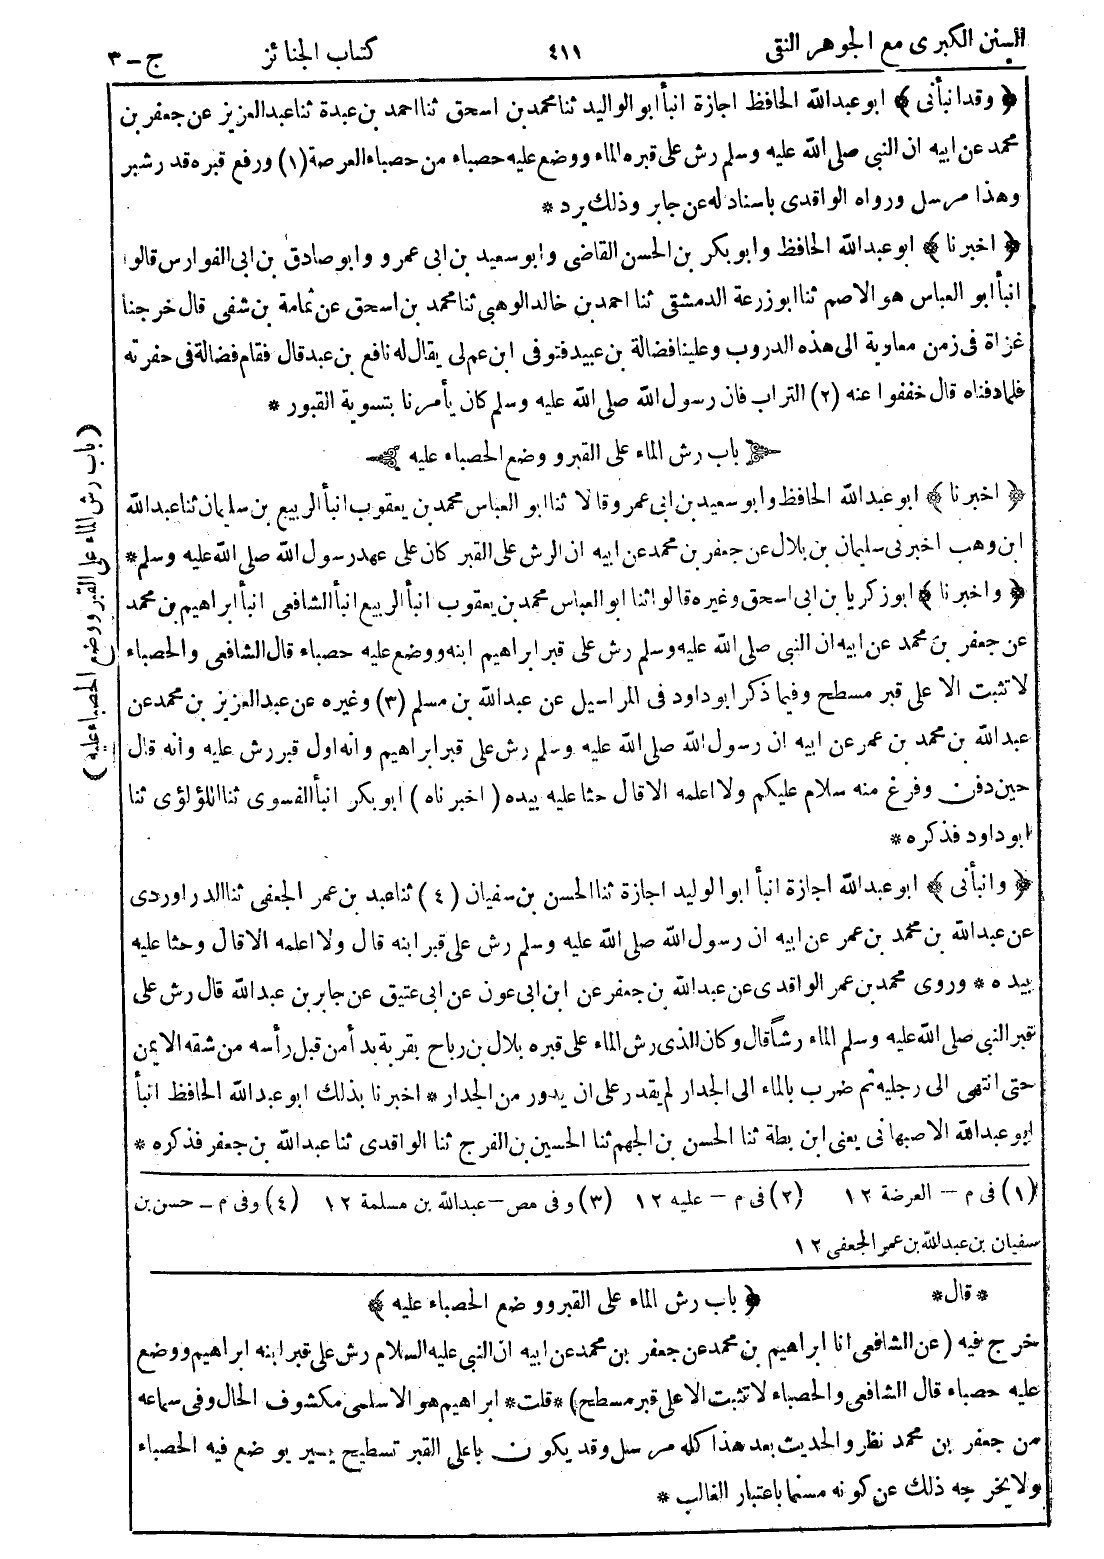 السنن الكبرى مع الجوهر النقى ٤١١ كتاب الجنائز ج-٣
﴿ وقد انبأنى ﴾ ابو عبدالله الحافظ اجازة انبأ ابو الوليد ثنا محمد بن اسحق ثنا احمد بن عبدة ثنا عبد العزيز عن جعفر بن
محمد عن ابيه ان النبى صلى الله عليه وسلم رش على قبره الماء ووضع عليه حصباء من حصباء العرصة (١) ورفع قبره قدر شبر
وهذا مرسل ورواه الواقدى باسناد له عن جابر وذلك يرد *
﴿ اخبرنا ﴾ ابو عبدالله الحافظ وابوبكر بن الحسن القاضى وابو سعيد بن ابى عمرو وابو صادق بن ابى الفوارس قالوا
انبأ ابو العباس هو الاصم ثنا ابو زرعة الدمشقى ثنا احمد بن خالد الوهبى ثنا محمد بن اسحق عن ثمامة بن شفى قال خرجنا
غزاة فى زمن معاوية الى هذه الدروب وعلينا فضالة بن عبيد فتوفى ابن عم لى يقال له نافع بن عبد قال فقام فضالة فى حفرته
فلما دفناه قال خففوا عنه (٢) التراب فان رسول الله صلى الله عليه وسلم كان يأمرنا بتسوية القبور *
باب رش الماء على القبر ووضع الحصباء عليه
﴿ اخبرنا ﴾ ابو عبدالله الحافظ وابو سعيد بن ابى عمرو قالا ثنا ابو العباس محمد بن يعقوب انبأ الربيع بن سليمان ثنا عبدالله
ابن وهب اخبرنى سليمان بن بلال عن جعفر بن محمد عن ابيه ان الرش على القبر كان على عهد رسول الله صلى الله عليه وسلم *
﴿ واخبرنا ﴾ ابو زكريا بن ابى اسحق وغيره قالوا ثنا ابو العباس محمد بن يعقوب انبأ الربيع انبأ الشافعى انبأ ابراهيم بن محمد
عن جعفر بن محمد عن ابيه ان النبى صلى الله عليه وسلم رش على قبر ابراهيم ابنه ووضع عليه حصباء قال الشافعى والحصباء
لا تثبت الا على قبر مسطح وفيما ذكر ابو داود فى المراسيل عن عبدالله بن مسلم (٣) وغيره عن عبد العزيز بن محمد عن
عبدالله بن محمد بن عمر عن ابيه ان رسول الله صلى الله عليه وسلم رش على قبر ابراهيم وانه اول قبر رش عليه وانه قال
حين دفن وفرغ منه سلام عليكم ولا اعلمه الا قال حثا عليه بيده ( اخبرناه ) ابوبكر انبأ الفسوى ثنا اللؤلؤى ثنا
ابو داود فذكره *
﴿ وانبأنى ﴾ ابو عبدالله اجازة انبأ ابو الوليد اجازة ثنا الحسن بن سفيان (٤) ثنا عبد بن عمر الجعفى ثنا الدراوردى
عن عبدالله بن محمد بن عمر عن ابيه ان رسول الله صلى الله عليه وسلم رش على قبر ابنه قال ولا اعلمه الا قال وحثا عليه
بيده * وروى محمد بن عمر الواقدى عن عبدالله بن جعفر عن ابن ابى عون عن ابى عتيق عن جابر بن عبدالله قال رش على
قبر النبى صلى الله عليه وسلم الماء رشاً قال وكان الذى رش الماء على قبره بلال بن رباح بقربة بدأ من قبل رأسه من شقه الايمن
حتى انتهى الى رجليه ثم ضرب بالماء الى الجدار لم يقدر على ان يدور من الجدار * اخبرنا بذلك ابو عبدالله الحافظ انبأ
ابو عبدالله الاصبهانى يعنى ابن بطة ثنا الحسن بن الجهم ثنا الحسين بن الفرج ثنا الواقدى ثنا عبدالله بن جعفر فذكره *
(باب رش الماء على القبر ووضع الحصباء عليه)
(١) فى م - العرضة ١٢ (٢) فى م - عليه ١٢ (٣) وفى مص - عبدالله بن مسلمة ١٢ (٤) وفى م - حسن بن
سفيان بن عبدالله بن عمر الجعفى ١٢
* قال * ﴿ باب رش الماء على القبر ووضع الحصباء عليه ﴾
خرج فيه (عن الشافعى انا ابراهيم بن محمد عن جعفر بن محمد عن ابيه ان النبى عليه السلام رش على قبر ابنه ابراهيم ووضع
عليه حصباء قال الشافعى والحصباء لا تثبت الا على قبر مسطح) * قلت * ابراهيم هو الاسلمى مكشوف الحال وفى سماعه
من جعفر بن محمد نظر والحديث بعد هذا كله مرسل وقد يكون باعلى القبر تسطيح يسير يوضع فيه الحصباء
ولا يخرجه ذلك عن كونه مسنما باعتبار الغالب *